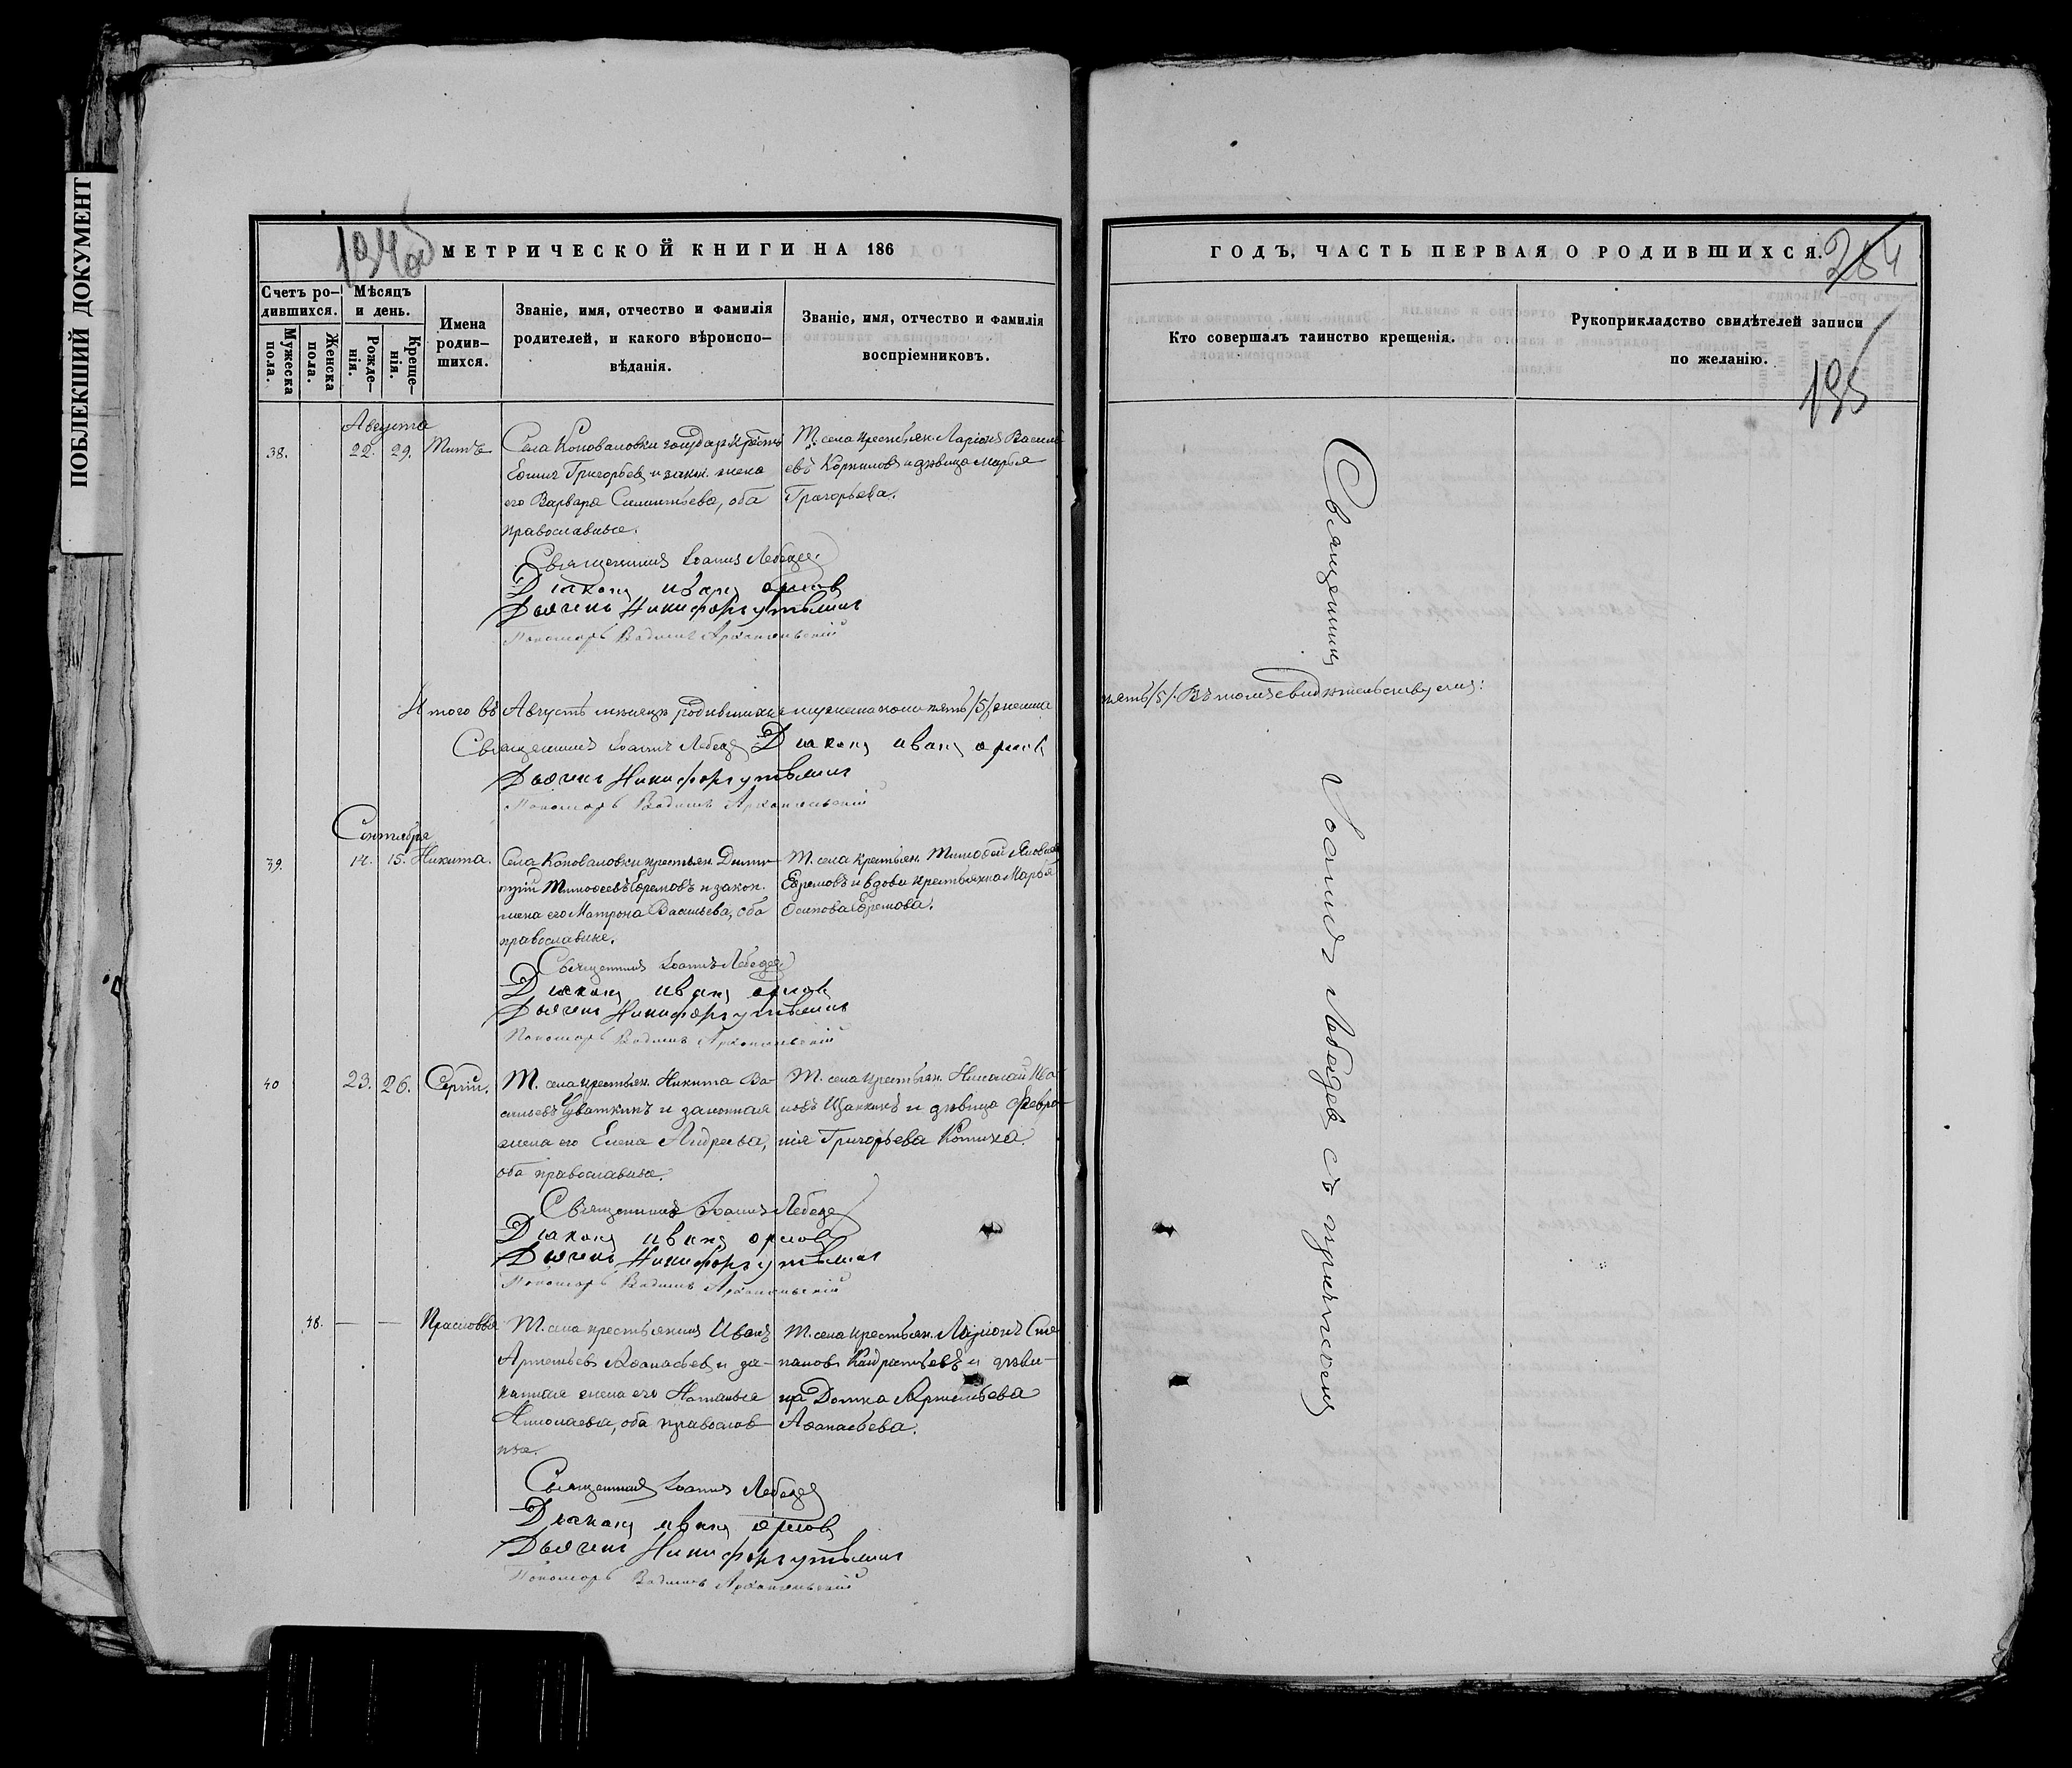 ПОБЛЕКШИЙ ДОКУМЕНТ
194об
МЕТРИЧЕСКОЙ КНИГИ НА 186
Счетъ ро-
дившихся.
Мужеска
пола.
Женска
пола.
Мѣсяцъ
и день.
Рожде-
нія.
Креще-
нія.
Имена
родив-
шихся.
Званіе, имя, отчество и фамилія
родителей, и какого вѣроиспо-
вѣданія.
Званіе, имя, отчество и фамилія
воспріемниковъ.
Августа
38. 22. 29. Титъ
Села Коноваловки государ. крестьян.
Григорьев и закон. жена
его Варвара Силантьева, оба
православные.
Т. села крестьян. Ларіонъ Василь-
евъ Корниловъ и дѣвица Марья
Григорьева.
Священникъ Іоаннъ Лебедев
Діаконъ Иванъ Орлов
Дьячекъ Никифоръ Утѣхин
Пономарь Вадимъ Архангельскій
Итого въ Августѣ мѣсяцѣ родившихся мужеска пола пять /5/ женска
Священникъ Іоаннъ Лебедев Діаконъ Иванъ Орлов
Дьячекъ Никифоръ Утѣхин
Пономарь Вадимъ Архангельскій
Сентября
39. 14. 15. Никита.
Села Коноваловки крестьян. Дими-
трій Тимоѳеевъ Ефремовъ и закон.
жена его Матрона Васильева, оба
православные.
Т. села крестьян. Тимоѳей Яковлев
Ефремовъ и вдова крестьянка Марья
Осипова Ефремова.
Священникъ Іоаннъ Лебедев
Діаконъ Иванъ Орлов
Дьячекъ Никифоръ Утѣхин
Пономарь Вадимъ Архангельскій
40 23. 26. Сергій.
Т. села крестьян. Никита Ва-
сильевъ Цваткинъ и законная
жена его Елена Андреева,
оба православные.
Т. села крестьян. Николай
Щанкинъ и дѣвица Февро-
нія Григорьева
Священникъ Іоаннъ Лебедев
Діаконъ Иванъ Орлов
Дьячекъ Никифоръ Утѣхин
Пономарь Вадимъ Архангельскій
48. — — Прасковья
Т. села крестьянинъ Иванъ
Артемьев Аѳанасьев и за-
конная жена его Наталья
Николаева, оба православ-
ные.
Т. села крестьян. Ларіонъ Сте-
панов Кондратьевъ и дѣви-
ца Домна Артемьева
Аѳанасьева.
Священникъ Іоаннъ Лебедев
Діаконъ Иванъ Орлов
Дьячекъ Никифоръ Утѣхин
Пономарь Вадимъ Архангельскій
ГОДЪ, ЧАСТЬ ПЕРВАЯ О РОДИВШИХСЯ.
254
195
Кто совершалъ таинство крещенія.
Рукоприкладство свидѣтелей записи
по желанію.
пять /5/. Въ томъ свидѣтельствуемъ:
Священникъ Іоаннъ Лебедев съ причтомъ